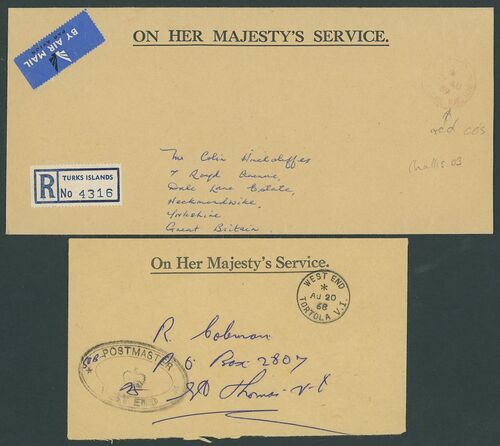 BY AIR MAIL
PAR AVION
ON HER MAJESTY'S SERVICE.
red cds
Challis 03
R
TURKS ISLANDS
No 4316
Mr Colin Hinchcliffes
7 Royd Avenue,
Dale Lane Estate,
Heckmondwike,
Yorkshire
Great Britain
On Her Majesty's Service.
WEST END
*
AU 20
68
TORTOLA V.I.
R. Coleman
P.O Box 2807
St Thomas - V.I
POSTMASTER
WEST END